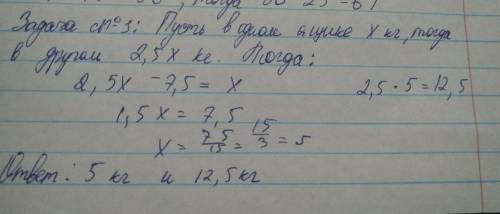 тогда
Задача №3: Пусть в одном ящике x кг, тогда
в другом 2,5x кг. Тогда:
2,5x - 7,5 = x 2,5 · 5 = 12,5
1,5x = 7,5
x = 75/15 = 15/3 = 5
Ответ: 5 кг и 12,5 кг